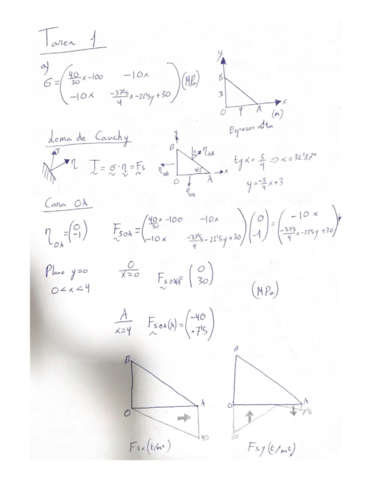 Tarea 1
a)
σ = ( 40/30 x-100   -10x
-10x   -375/4 x-22'5y+30 ) (MPa)
y
B
3
O 4 A x
(m)
Espesor 1m
Lema de Cauchy
T n   T = σ·n = Fs
B
O A x
tg α = 3/4 => α = 36'87º
y = -3/4 x+3
Cara OA
n OA = ( 0
-1 )
Fs OA = ( 40/30 x-100   -10x
-10x   -375/4 x-22'5y+30 ) ( 0
-1 ) = ( -10x
-375/4 x-22'5y+30 )
Plano y=0
0<x<4
O
x=0
Fs OA ( 0
30 )
(MPa)
A
x=4
Fs OA(A) = ( -40
-7'5 )
B
O A
40
Fsx (t/m²)
B
O A
7'5
30
Fsy (t/m²)